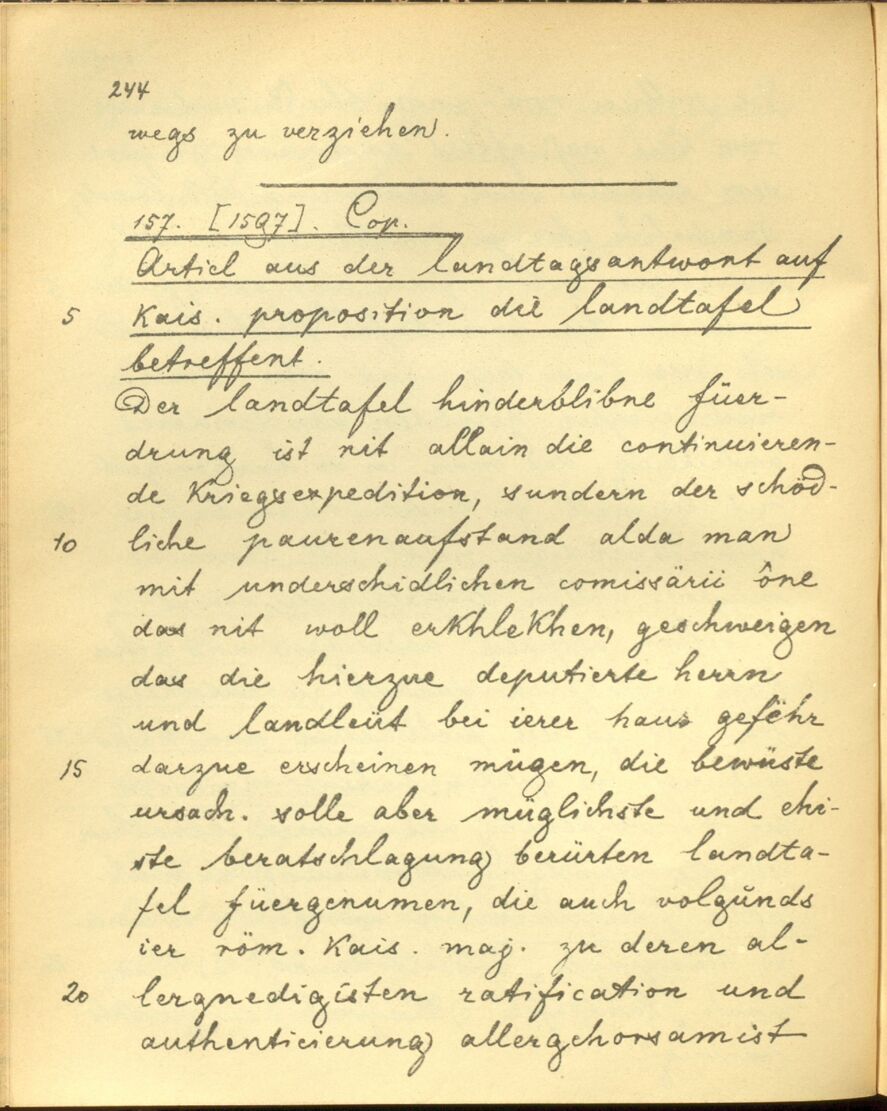 244
wegs zu verziehen.
157. [1597]. Cop.
Articl aus der landtagsantwort auf
5 Kais. proposition die landtafel
betreffent.
Der landtafel hinderblibne füer-
drung ist nit allain die continuieren-
de Kriegsexpedition, sundern der schöd-
10 liche paurenaufstand alda man
mit underschidlichen comissärii ône
das nit woll erKhleKhen, geschweigen
das die hierzue deputierte herrn
und landleüt bei ierer haus gefëhr
15 darzue erscheinen mügen, die bewüste
ursach. solle aber müglichste und ehi-
ste beratschlagung berürten landta-
fel füergenumen, die auch volgünds
ier röm. Kais. maj. zu deren al-
20 lergnedigisten ratification und
authenticierung allergehorsamist